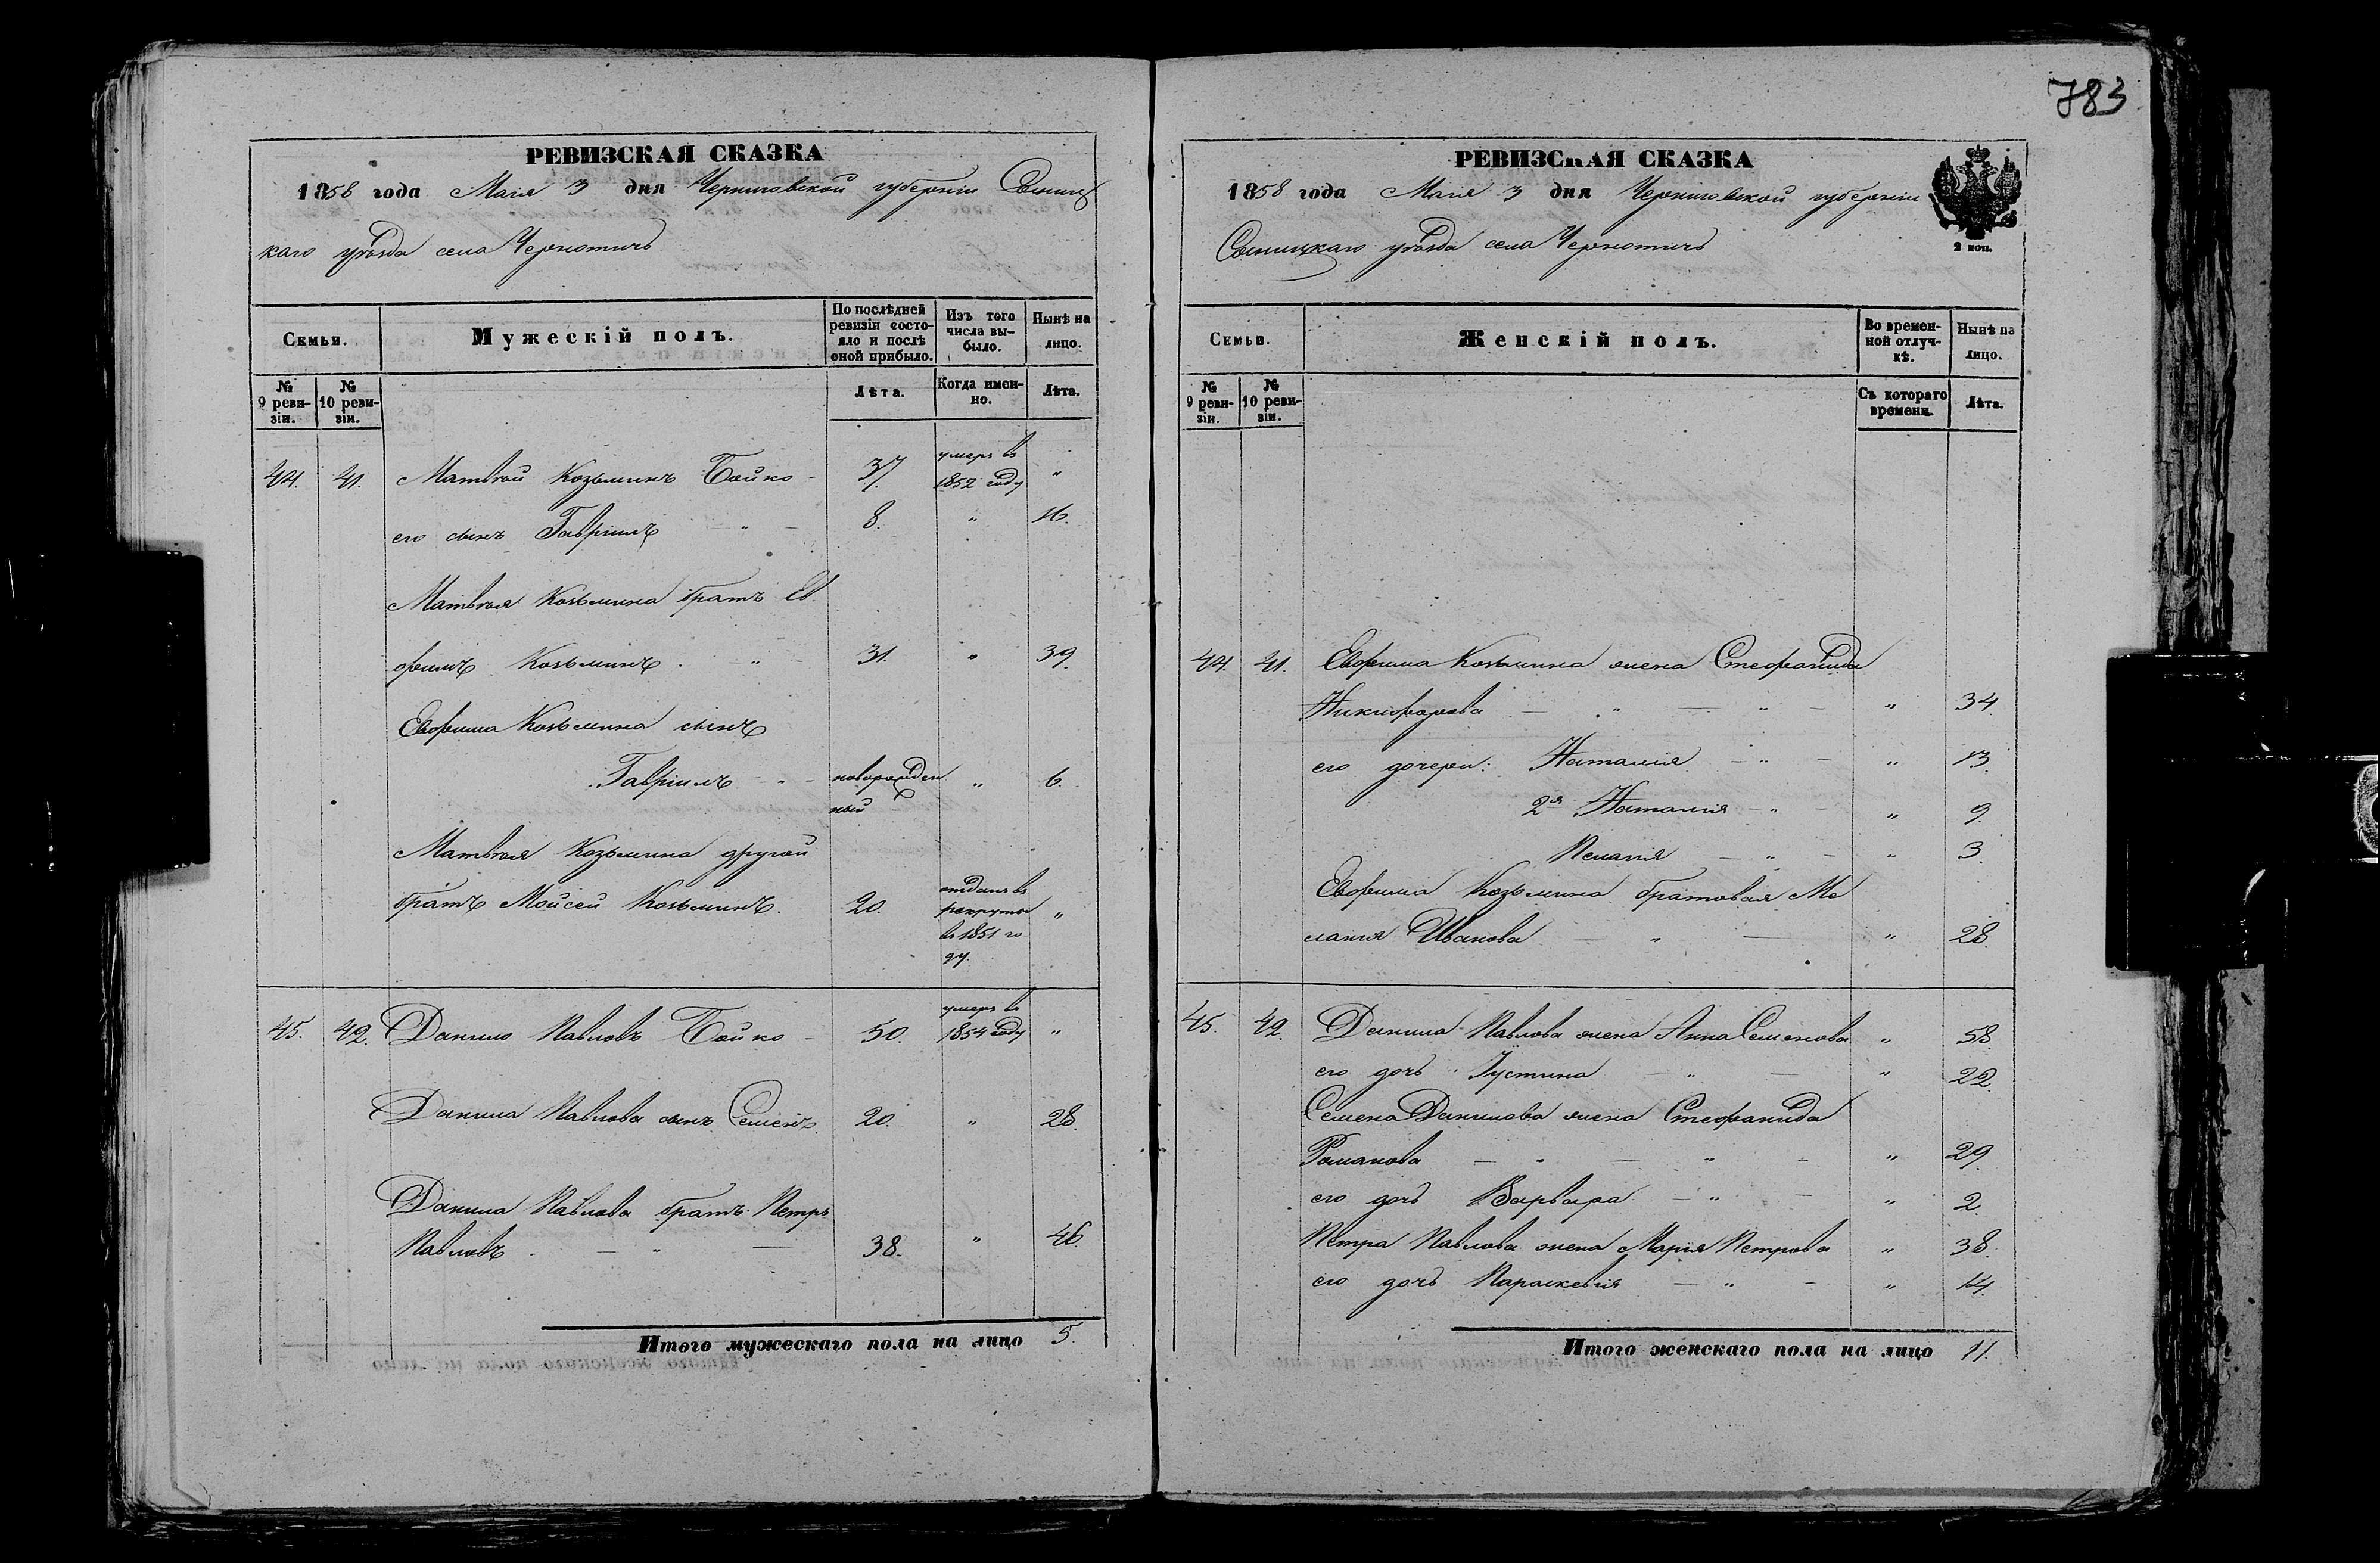 783
РЕВИЗСКАЯ СКАЗКА
1858 года Маія 3 дня Черниговской губерніи Сосниц
каго уѣзда села Чернотичъ
Семьи.
Мужескій полъ.
По послѣдней ревизіи состояло и послѣ оной прибыло.
Изъ того числа вы-было.
Нынѣ на лицо.
№ 9 реви-зіи.
№ 10 реви-зіи.
Лѣта.
Когда имен-но.
Лѣта.
44. 41. Матвѣй Козьминъ Бойко - 37. умеръ въ 1852 году "
его сынъ Гавріилъ - " - 8. " 16.
Матвѣя Козьмина братъ Ев-
фимъ Козьминъ. - " - 31. " 39.
Евфима Козьмина сынъ
Гавріилъ - " - новорожден ный " 6.
Матвѣя Козьмина другой
братъ Мойсей Козьминъ. 20. отданъ въ рекруты въ 1851 го ду. "
45. 42. Данило Павловъ Бойко - 50. умеръ въ 1854 году "
Данила Павлова сынъ Семенъ. 20. " 28.
Данила Павлова братъ Петръ
Павловъ. - " - 38. " 46.
Итого мужескаго пола на лицо 5.
РЕВИЗСКАЯ СКАЗКА
1858 года Маія 3 дня Черниговской губерніи
Сосницкаго уѣзда села Чернотичъ
2 коп.
Семьи.
Женскій полъ.
Во времен-ной отлуч-кѣ.
Нынѣ на лицо.
№ 9 реви-зіи.
№ 10 реви-зіи.
Съ котораго времени.
Лѣта.
44. 41. Евфима Козьмина жена Стефанида
Никифорова - " - " - " 34.
его дочери: Наталія - " - " 13.
2я Наталія - " - " 9.
Пелагія - " - " 3.
Евфима Козьмина братовая Ме
ланія Иванова - " - " 28.
45. 42. Данила Павлова жена Анна Семенова " 58.
его дочь Іустина - " - " 22.
Семена Данилова жена Стефанида
Романова - " - " - " 29.
его дочь Варвара - " - " 2.
Петра Павлова жена Марія Петрова " 38.
его дочь Параскевія - " - " 14.
Итого женскаго пола на лицо 11.